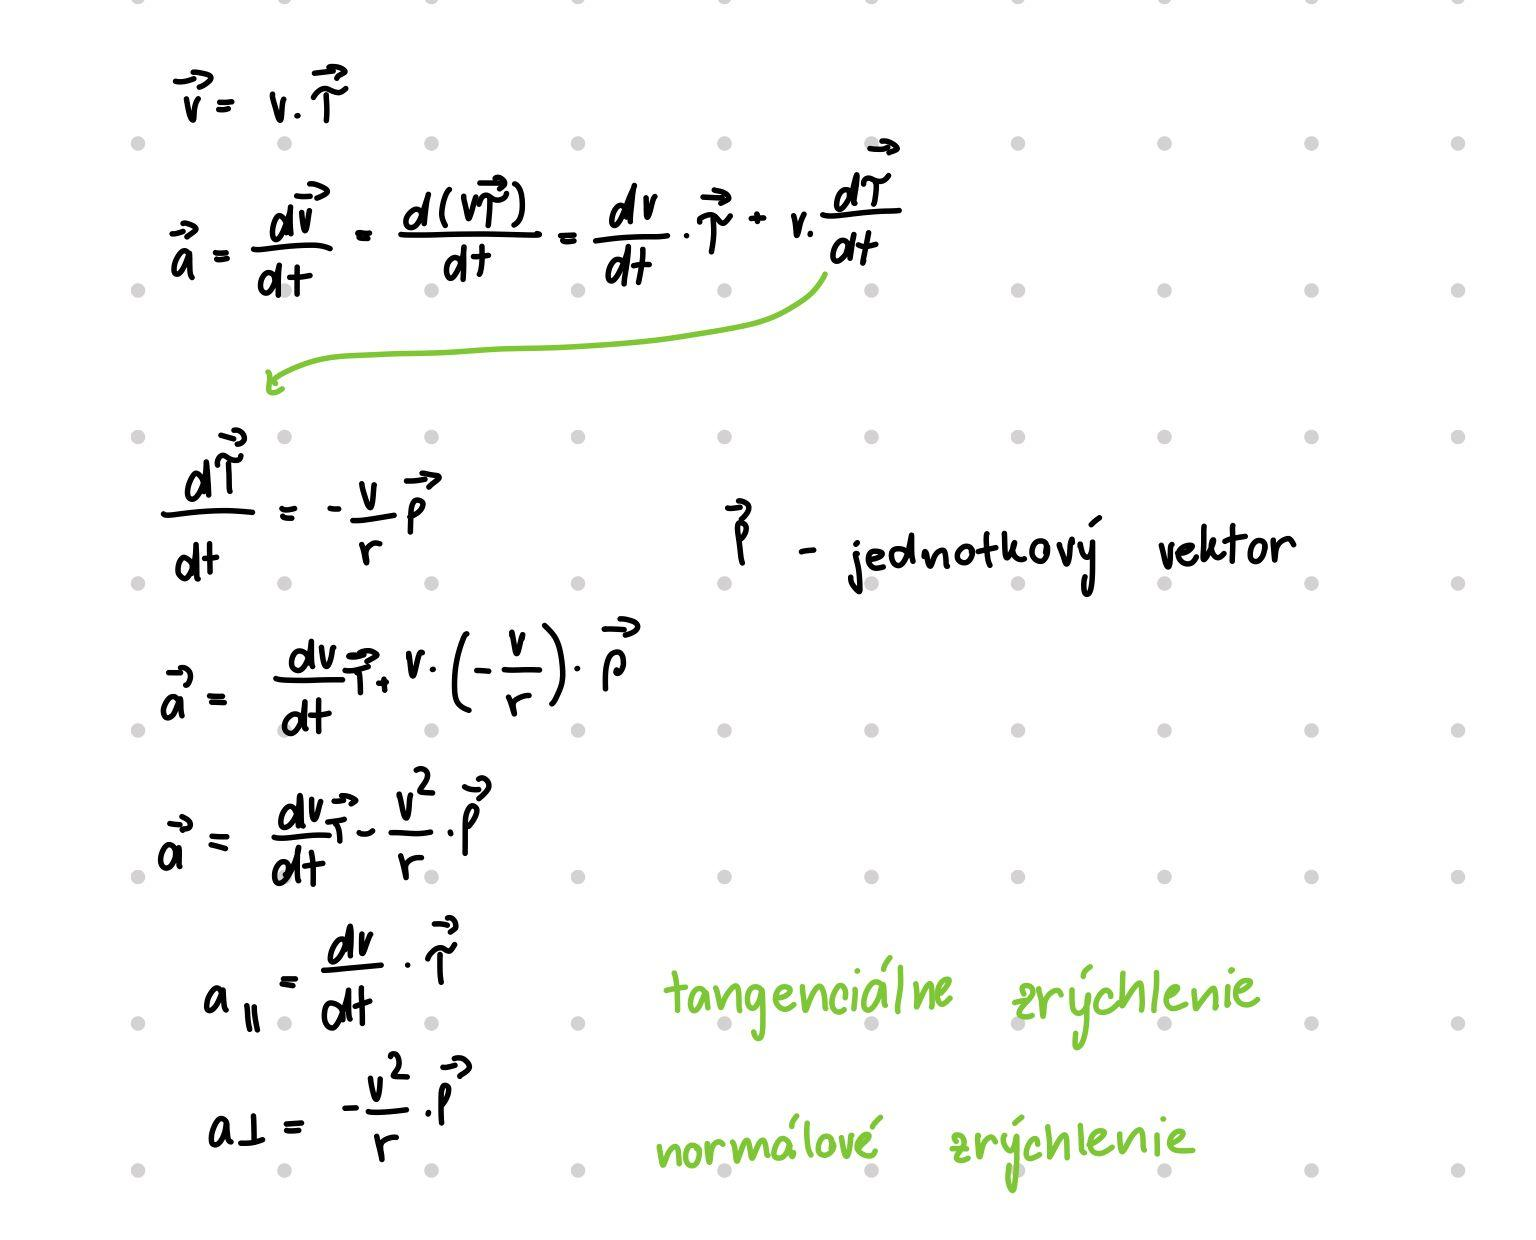 v⃗ = v . τ⃗
a⃗ = dv⃗/dt = d(vτ⃗)/dt = dv/dt · τ⃗ + v. dτ⃗/dt
dτ⃗/dt = - v/r ρ⃗
ρ⃗ - jednotkový vektor
a⃗ = dv/dt τ⃗ + v · (- v/r) · ρ⃗
a⃗ = dv/dt τ⃗ - v²/r · ρ⃗
a∥ = dv/dt · τ⃗ tangenciálne zrýchlenie
a⊥ = - v²/r · ρ⃗ normálové zrýchlenie